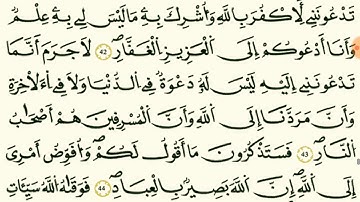 تَدْعُونَنِے لِأَكْفُرَ بِاللَّهِ وَأُشْرِكَ بِهِۦ مَا لَيْسَ لِے بِهِۦ عِلْمٌ
وَأَنَا أَدْعُوكُمْ إِلَى اَلْعَزِيزِ اِلْغَفَّٰرِ ۖ 42 لَا جَرَمَ أَنَّمَا
تَدْعُونَنِے إِلَيْهِ لَيْسَ لَهُۥ دَعْوَةٌ فِے اِلدُّنْي۪ا وَلَا فِے اِلْأَخِرَةِ
وَأَنَّ مَرَدَّنَا إِلَى اَللَّهِ وَأَنَّ اَلْمُسْرِفِينَ هُمْ أَصْحَٰبُ
اُلنّ۪ارِ ۖ 43 فَسَتَذْكُرُونَ مَا أَقُولُ لَكُمْ ۖ وَأُفَوِّضُ أَمْرِيَ
إِلَى اَللَّهِ ۖ إِنَّ اَللَّهَ بَصِيرٌۢ بِالْعِبَادِ ۖ 44 فَوَق۪يٰهُ اُللَّهُ سَيِّـَٔاتِ